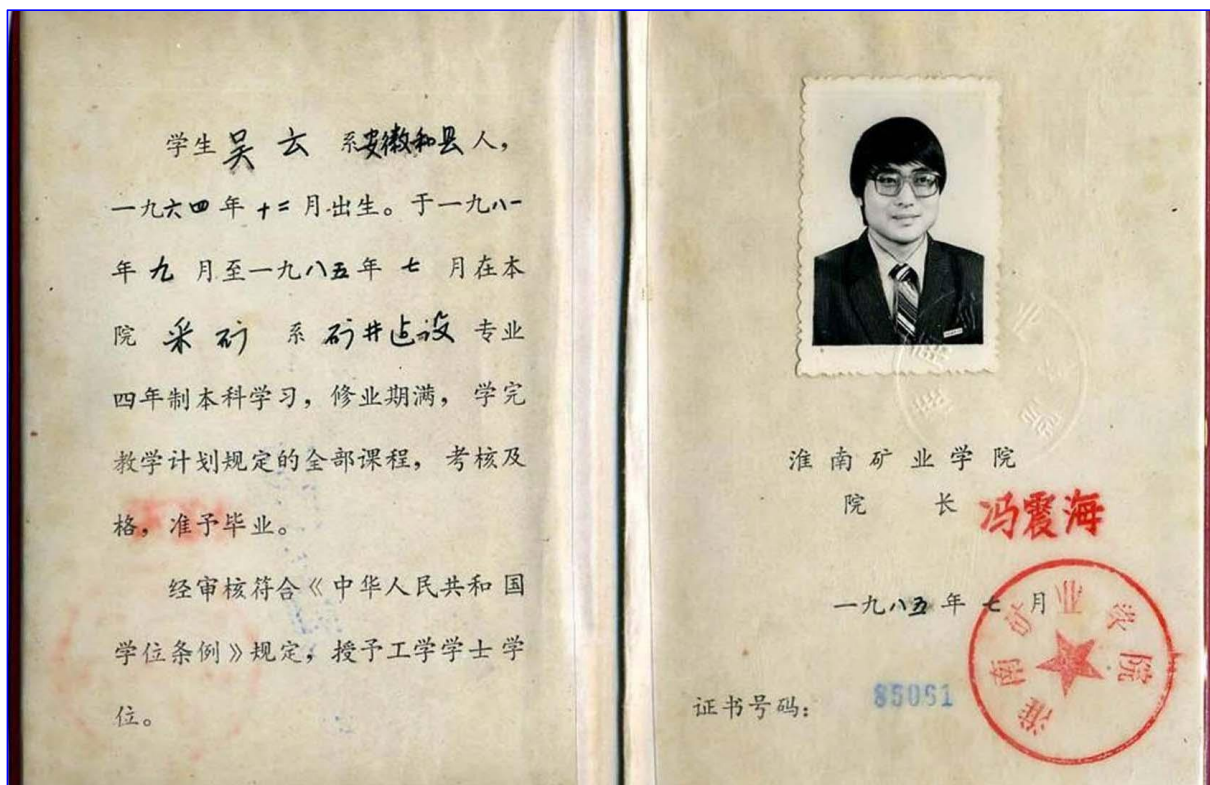 学生吴云系安徽和县人，
一九六四年十二月出生。于一九八一
年九月至一九八五年七月在本
院采矿系矿井建设专业
四年制本科学习，修业期满，学完
教学计划规定的全部课程，考核及
格，准予毕业。
经审核符合《中华人民共和国
学位条例》规定，授予工学学士学
位。
淮南矿业学院
院长 冯震海
一九八五年七月
淮南矿业学院
证书号码：85051